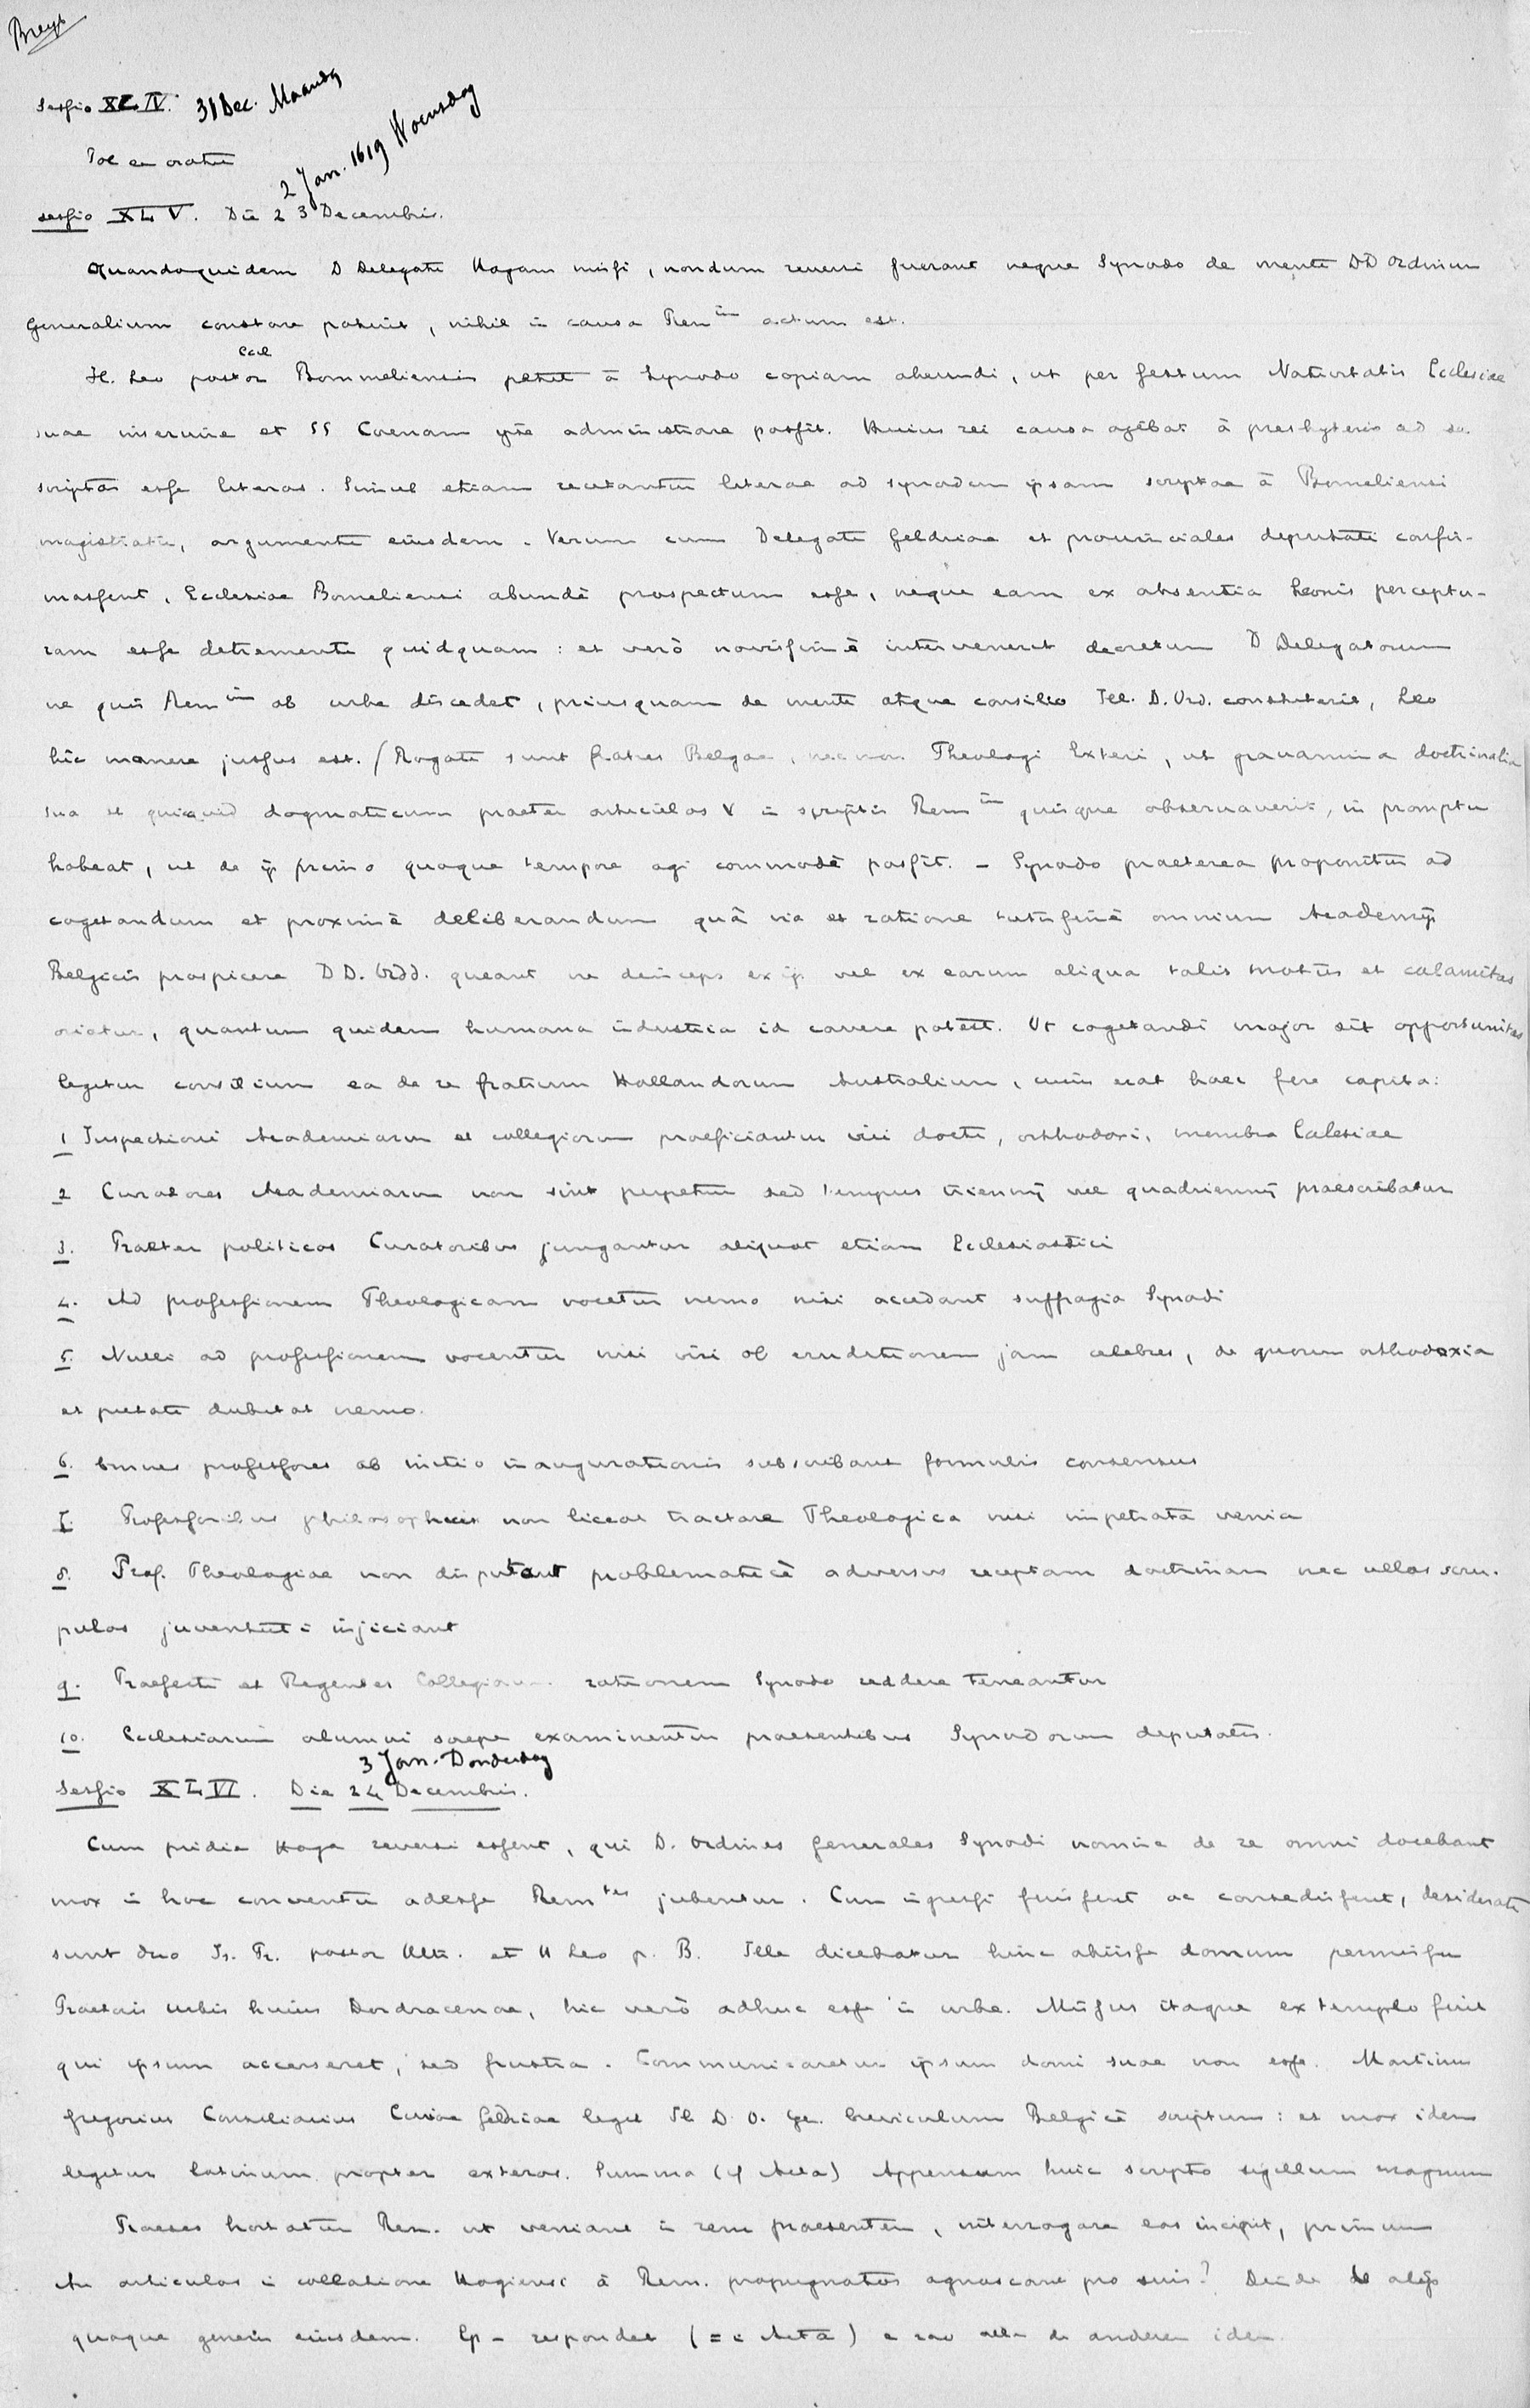 Breys
Sessio XLIV. 31 Dec. Maandag
Toe en oratie
2 Jan. 1619 Woensdag
sessio XLV. Die 23 Decembris.
Quandoquidem D Delegati Hagam missi, nondum reversi fuerant neque Synodo de mente DD Ordinum
Generalium constare potuit, nihil in causa Rem im actum est.
H. Leo pastor Eccl Bommeliensis petit à Synodo copiam abeundi, ut per festum Nativitatis Ecclesiae
suae inservire et SS Coenam ipse administrare possit. Huius rei causa agebat à presbyteris ad se
scriptas esse literas. Simul etiam recitantur literae ad synodum ipsam scriptae à Bomeliensi
magistratu, argumenti eiusdem. Verum cum Delegati Geldriae et provinciales deputati confir-
massent, Ecclesiae Bomeliensi abundè prospectum esse, neque eam ex absentia Leonis perceptu-
ram esse detrementi quidquam: et verò novissimè intervenerit decretum D Delegatorum
ne quis Rem im ab urbe discedat, priusquam de mente atque consilio Ill. D. Ord. constiterit, Leo
hic manere jussus est. / Rogati sunt fratres Belgae, nec non Theologi Exteri, ut gravamina doctrinalia
sua et quicquid dogmaticum praeter articulos V in scriptis Rem im quisque observaverit, in promptu
habeat, ut de ijs primo quoque tempore agi commodè possit. - Synodo praeterea proponitur ad
cogitandum et proximè deliberandum quâ via et ratione tutissimè omnium Academijs
Belgicis prospicere DD. Ordd. queant ne deinceps ex ijs vel ex earum aliqua talis motus et calamitas
oriatur, quantum quidem humana industria id cavere potest. Ut cogitandi major sit opportunitas
legitur consilium ea de re fratrum Hollandorum Australium, cuius erat haec fere capita:
1 Inspectioni Academiarum et collegiorum praeficiantur viri docti, orthodoxi, membra Ecclesiae
2 Curatores Academiarum non sint perpetui sed tempus triennij vel quadriennij praescribatur
3. Praeter politicos Curatoribus jungantur aliquot etiam Ecclesiastici
4. Ad professionem Theologicam vocetur nemo nisi accedant suffragia Synodi
5. Nulli ad professionem vocentur nisi viri ob eruditionem jam celebres, de quorum orthodoxia
et pietate dubitat nemo.
6. Omnes professores ab initio inaugurationis subscribant formulis consensus
7. Professoribus philosophicis non liceat tractare Theologica nisi impetrata venia
8. Prof. Theologiae non disputent problematicè adversus receptam doctrinam nec ullos scru-
pulos juventuti injiciant
9. Praefecti et Regentes Collegiorum rationem Synodo reddere teneantur
10. Ecclesiarum alumni saepe examinentur praesentibus Synodorum deputatis.
3 Jan. Donderdag
Sessio XLVI. Die 24 Decembris.
Cum pridie Haga reversi essent, qui D. Ordines Generales Synodi nomine de re omni docebant
mox in hoc conventu adesse Rem tes jubentur. Cum ingressi fuissent ac consedissent, desiderati
sunt duo Is. Fr. pastor Ultr. et H Leo p. B. Ille dicebatur hinc abiisse domum permissu
Praetoris urbis huius Dordracenae, hic verò adhuc esse in urbe. Missus itaque extemplo fuit
qui ipsum accerseret, sed frustra. Communicaretur ipsum domi suae non esse. Martinus
Gregorius Consiliarius Curiae Geldriae legit Ill D. O. Ge. breviculum Belgicè scriptum: et mox idem
legitur latinum propter exteros. Summa (cf Acta) Appensum huic scripto sigillum magnum
Praeses hortatur Rem. ut veniant in rem praesentem, interrogare eos incipit, primum
An articulos in collatione Hagiensi à Rem. propugnatos agnoscant pro suis? Deinde de alijs
quoque generis eiusdem. Ep - respondet (= in Acta) en zoo alle de anderen idem.